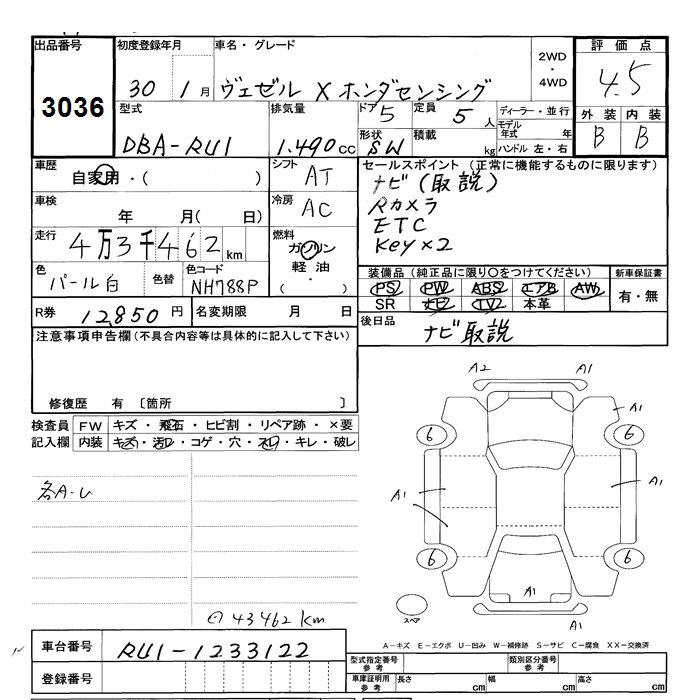 出品番号 初度登録年月 車名・グレード 評価点
3036 30年 1月 ヴェゼル X ホンダセンシング 2WD・4WD 4.5
型式 排気量 ドア 5 定員 5人 ディーラー・並行 外装 内装
モデル年式 年
DBA-RU1 1.490cc 形状 SW 積載 kg ハンドル 左・右 B B
車歴 シフト セールスポイント (正常に機能するものに限ります)
自家用・( ) AT ナビ(取説)
車検 冷房 Rカメラ
年 月( 日) AC ETC
走行 4万3千462km 燃料 ガソリン Key×2
色 色替 色コード 軽油・ 装備品 (純正品に限り○をつけてください) 新車保証書
パール白 NH788P ( ) PS PW ABS エアB AW 有・無
SR ナビ TV 本革
R券 12,850円 名変期限 月 日 後日品
注意事項申告欄(不具合内容等は具体的に記入して下さい) ナビ取説
修復歴 有 〔箇所 〕
検査員 FW キズ・飛石・ヒビ割・リペア跡・×要
記入欄 内装 キズ・汚レ・コゲ・穴・スレ・キレ・破レ
A2 A1
A1
6 6
各A-U
A1 A1
A1
6 6
A1
スペア
A1
43462km
A-キズ E-エクボ U-凹み W-補修跡 S-サビ C-腐食 XX-交換済
車台番号 RU1-1233122
型式指定番号 参考 類別区分番号 参考
登録番号
車庫証明用 参考 長さ cm 幅 cm 高さ cm